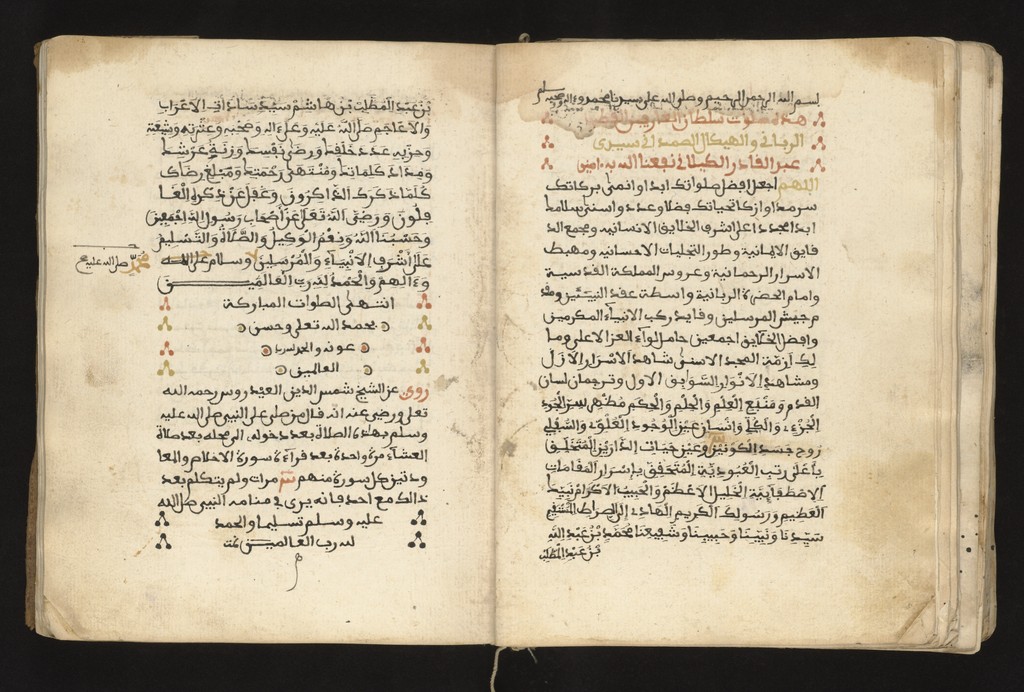 بسم الله الرحمن الرحيم وصلى الله على سيدنا محمد وءاله وصحبه وسلم
هذه صلوات سلطان العارفين القطب
الرباني والهيكل الصمداني سيدي
عبد القادر الكيلاني نفعنا الله به ءامين
اللهم اجعل افضل صلواتك ابدا وانمى بركاتك
سرمدا وازكا تحياتك فضلا وعددا واسنى سلامك
ابدا مجددا على اشرف الخلايق الانسانيه ومجمع الد
قايق الايمانية وطور التجليات الاحسانيه ومهبط
الاسرار الرحمانية وعروس المملكة القدسية
وامام الحضرة الربانية واسطة عقد النبيئين ومقد
م جيش المرسلين وقايد ركب الانبياء المكرمين
وافضل الخلايق اجمعين حامل لواء العز الاعلى وما
لك ازمة المجد الاسنى شاهد الاسرار الازل
ومشاهد الانوار السوابق الاول وترجمان لسان
القدم ومنبع العلم والحلم والحكم مظهر سر الجود
الجزءي والكلي وانسان عين الوجود العلوي والسفلي
روح جسد الكونين وعين حيات الدارين المتخلق
باعلى رتب العبودية المتحقق باسرار المقامات
الاصطفايية الخليل الاعظم والحبيب الاكرام نبيك
العظيم ورسولك الكريم الهادي الى الصراط المستقيم
سيدنا ونبينا وحبيبنا وشفيعنا محمد بن عبد الله
بن عبد المطلب
بن عبد المطلب بن هاشم سيد سادات الاعراب
والاعاجم صلى الله عليه وعلى اله وصحبه وعترته وشيعته
وحزبه عدد خلقك ورضى نفسك وزنة عرشك
ومداد كلماتك ومنتهى رحمتك ومبلغ رضاك
كلما ذكرك الذاكرون وغفل عن ذكره الغا
فلون ورضي الله تعلى عن اصحاب رسول الله اجمعين
وحسبنا الله ونعم الوكيل والصلاة والتسليم
على اشرف الانبياء والمرسلين وسلام على
وءالهم والحمد لله رب العالمين
محمد صلى الله عليه
انتهى الصلوات المباركة
بحمد الله تعلى وحسن
عونه والحمد لله رب
العالمين
روى عن الشيخ شمس الدين العيدروس رحمه الله
تعلى ورضي عنه انه قال من صلى على النبي صلى الله عليه
وسلم بهذه الصلاة بعد دخوله الى محله بعد صلاة
العشاء مرة واحدة بعد قراءة سورة الاخلاص والمعا
ودتين كل سورة منهم مرات ولم يتكلم بعد
ذالك مع احد فانه يرى في منامه النبي صلى الله
عليه وسلم تسليما والحمد
لله رب العالمين